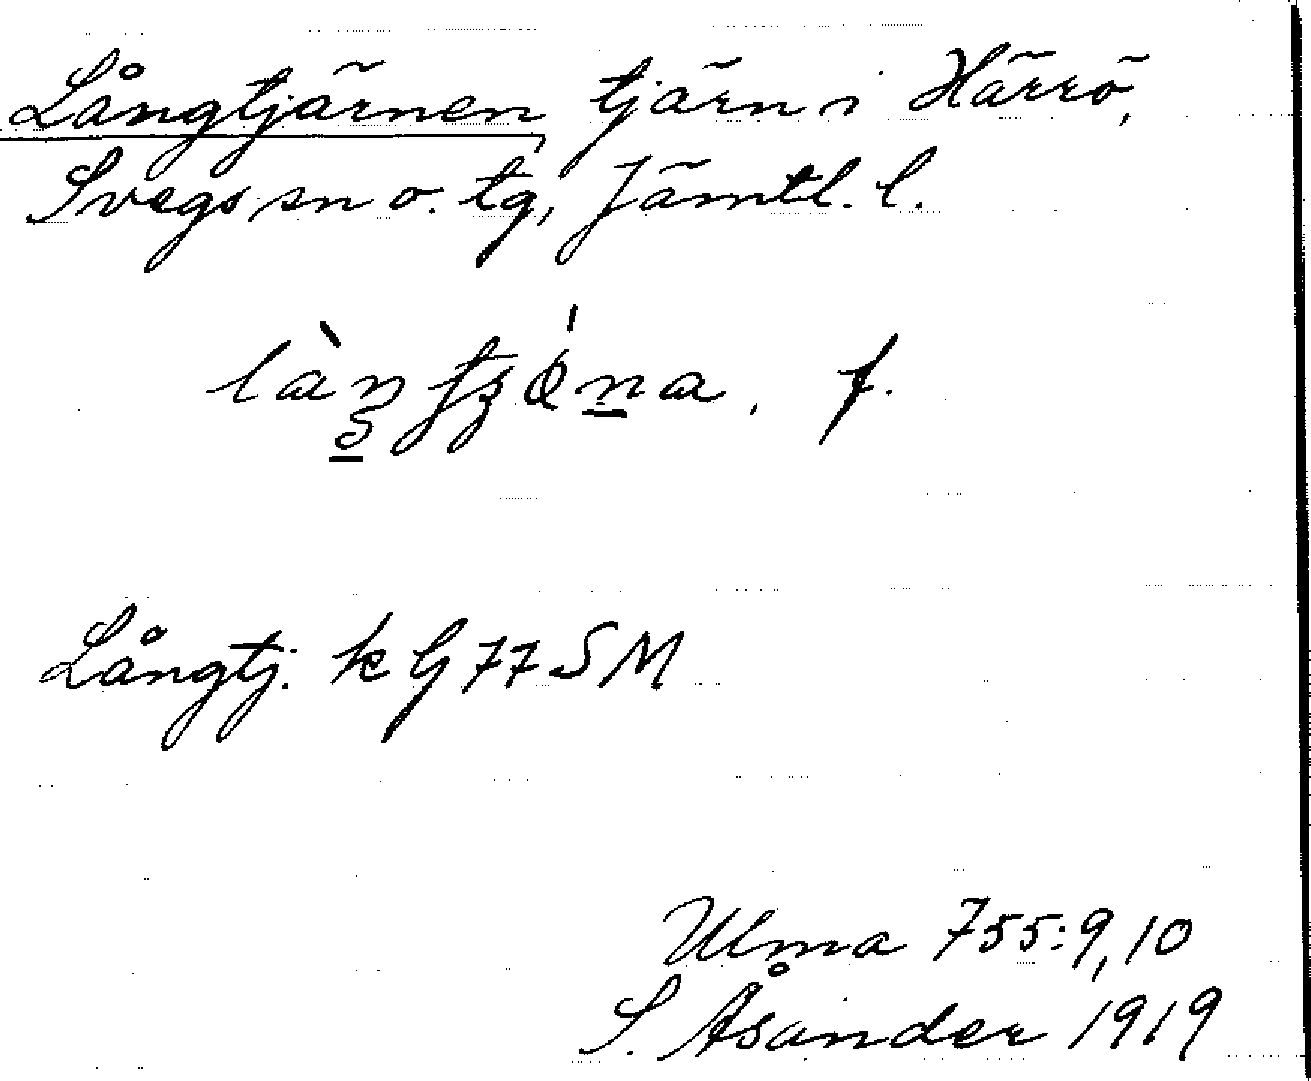 Långtjärnen tjärn i Härrö,
Svegs sn o. tg, Jämtl. l.
f.
Långtj. kG77SM
Ulma 755:9,10
S. Åsander 1919